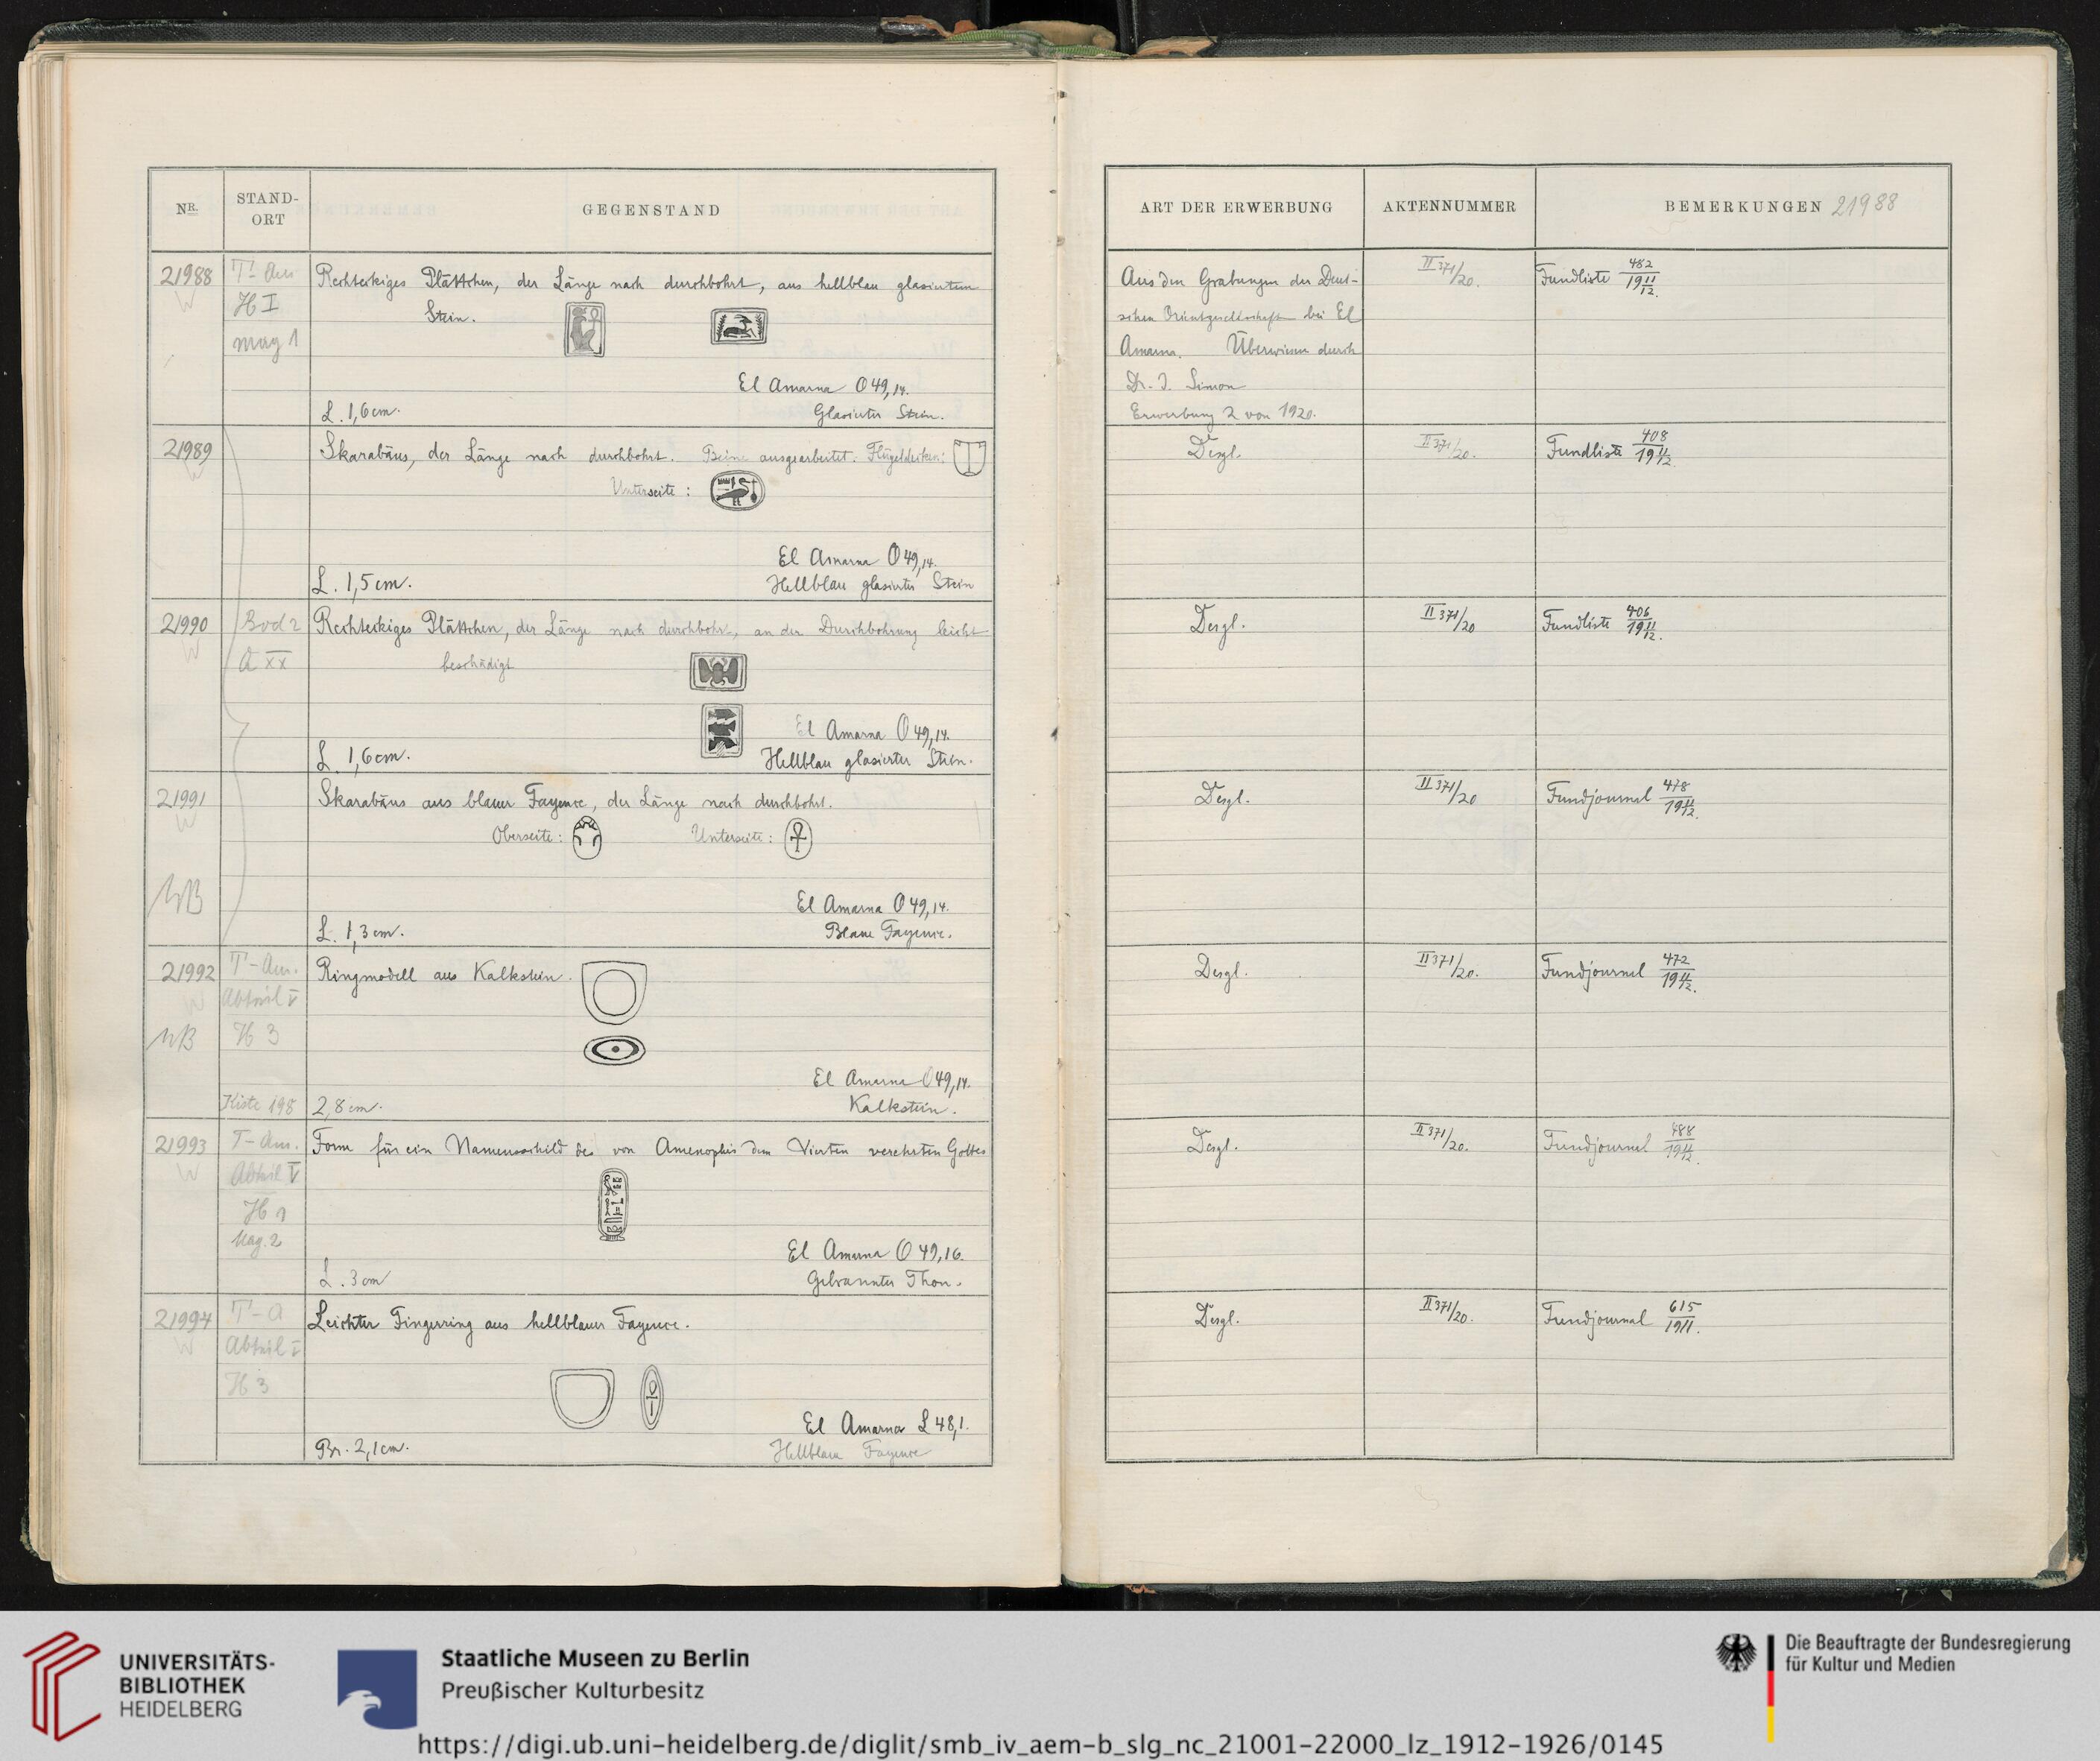 NR.
STAND-
ORT
GEGENSTAND
21988
T'-Am
H I
mag 1
Rechteckiges Plättchen, der Länge nach durchbohrt, aus hellblau glasiertem
Stein.
El Amarna O 49,14.
L. 1,6 cm.
Glasierter Stein.
21989
Skarabäus, der Länge nach durchbohrt. Beine ausgearbeitet. Flügeldecken:
Unterseite:
El Amarna O 49,14.
L. 1,5 cm.
Hellblau glasierter Stein
21990
Bod 2
A XX
Rechteckiges Plättchen, der Länge nach durchbohrt, an der Durchbohrung leicht
beschädigt
El Amarna O 49,14.
L. 1,6 cm.
Hellblau glasierter Stein.
21991
W
Skarabäus aus blauer Fayence, der Länge nach durchbohrt.
Oberseite: Unterseite:
El Amarna O 49,14.
L. 1,3 cm.
Blaue Fayence.
21992
T'-Am.
Abteil V
H 3
Kiste 198
Ringmodell aus Kalkstein.
El Amarna O 49,14.
2,8 cm.
Kalkstein.
21993
W
T-Am.
Abteil V
H 1
Mag. 2
Form für ein Namensschild des von Amenophis dem Vierten verehrten Gottes
El Amarna O 49,16.
L. 3 cm
Gebrannter Thon.
21994
W
T'-A
Abteil I
H 3
Leichter Fingerring aus hellblauer Fayence.
El Amarna L 48,1.
Br. 2,1 cm.
Hellblaue Fayence
ART DER ERWERBUNG
AKTENNUMMER
BEMERKUNGEN 21988
Aus den Grabungen der Deut-
schen Orientgesellschaft bei El
Amarna. Überwiesen durch
Dr. J. Simon
Erwerbung 2 von 1920.
II 371/20.
Fundliste 482/1911/12.
Desgl.
II 371/20.
Fundliste 408/1911/12.
Desgl.
II 371/20
Fundliste 406/1911/12.
Desgl.
II 371/20
Fundjournal 478/1911/12.
Desgl.
II 371/20.
Fundjournal 472/1911/12.
Desgl.
II 371/20.
Fundjournal 488/1911/12.
Desgl.
II 371/20.
Fundjournal 615/1911.
UNIVERSITÄTS-
BIBLIOTHEK
HEIDELBERG
Staatliche Museen zu Berlin
Preußischer Kulturbesitz
Die Beauftragte der Bundesregierung
für Kultur und Medien
https://digi.ub.uni-heidelberg.de/diglit/smb_iv_aem-b_slg_nc_21001-22000_lz_1912-1926/0145